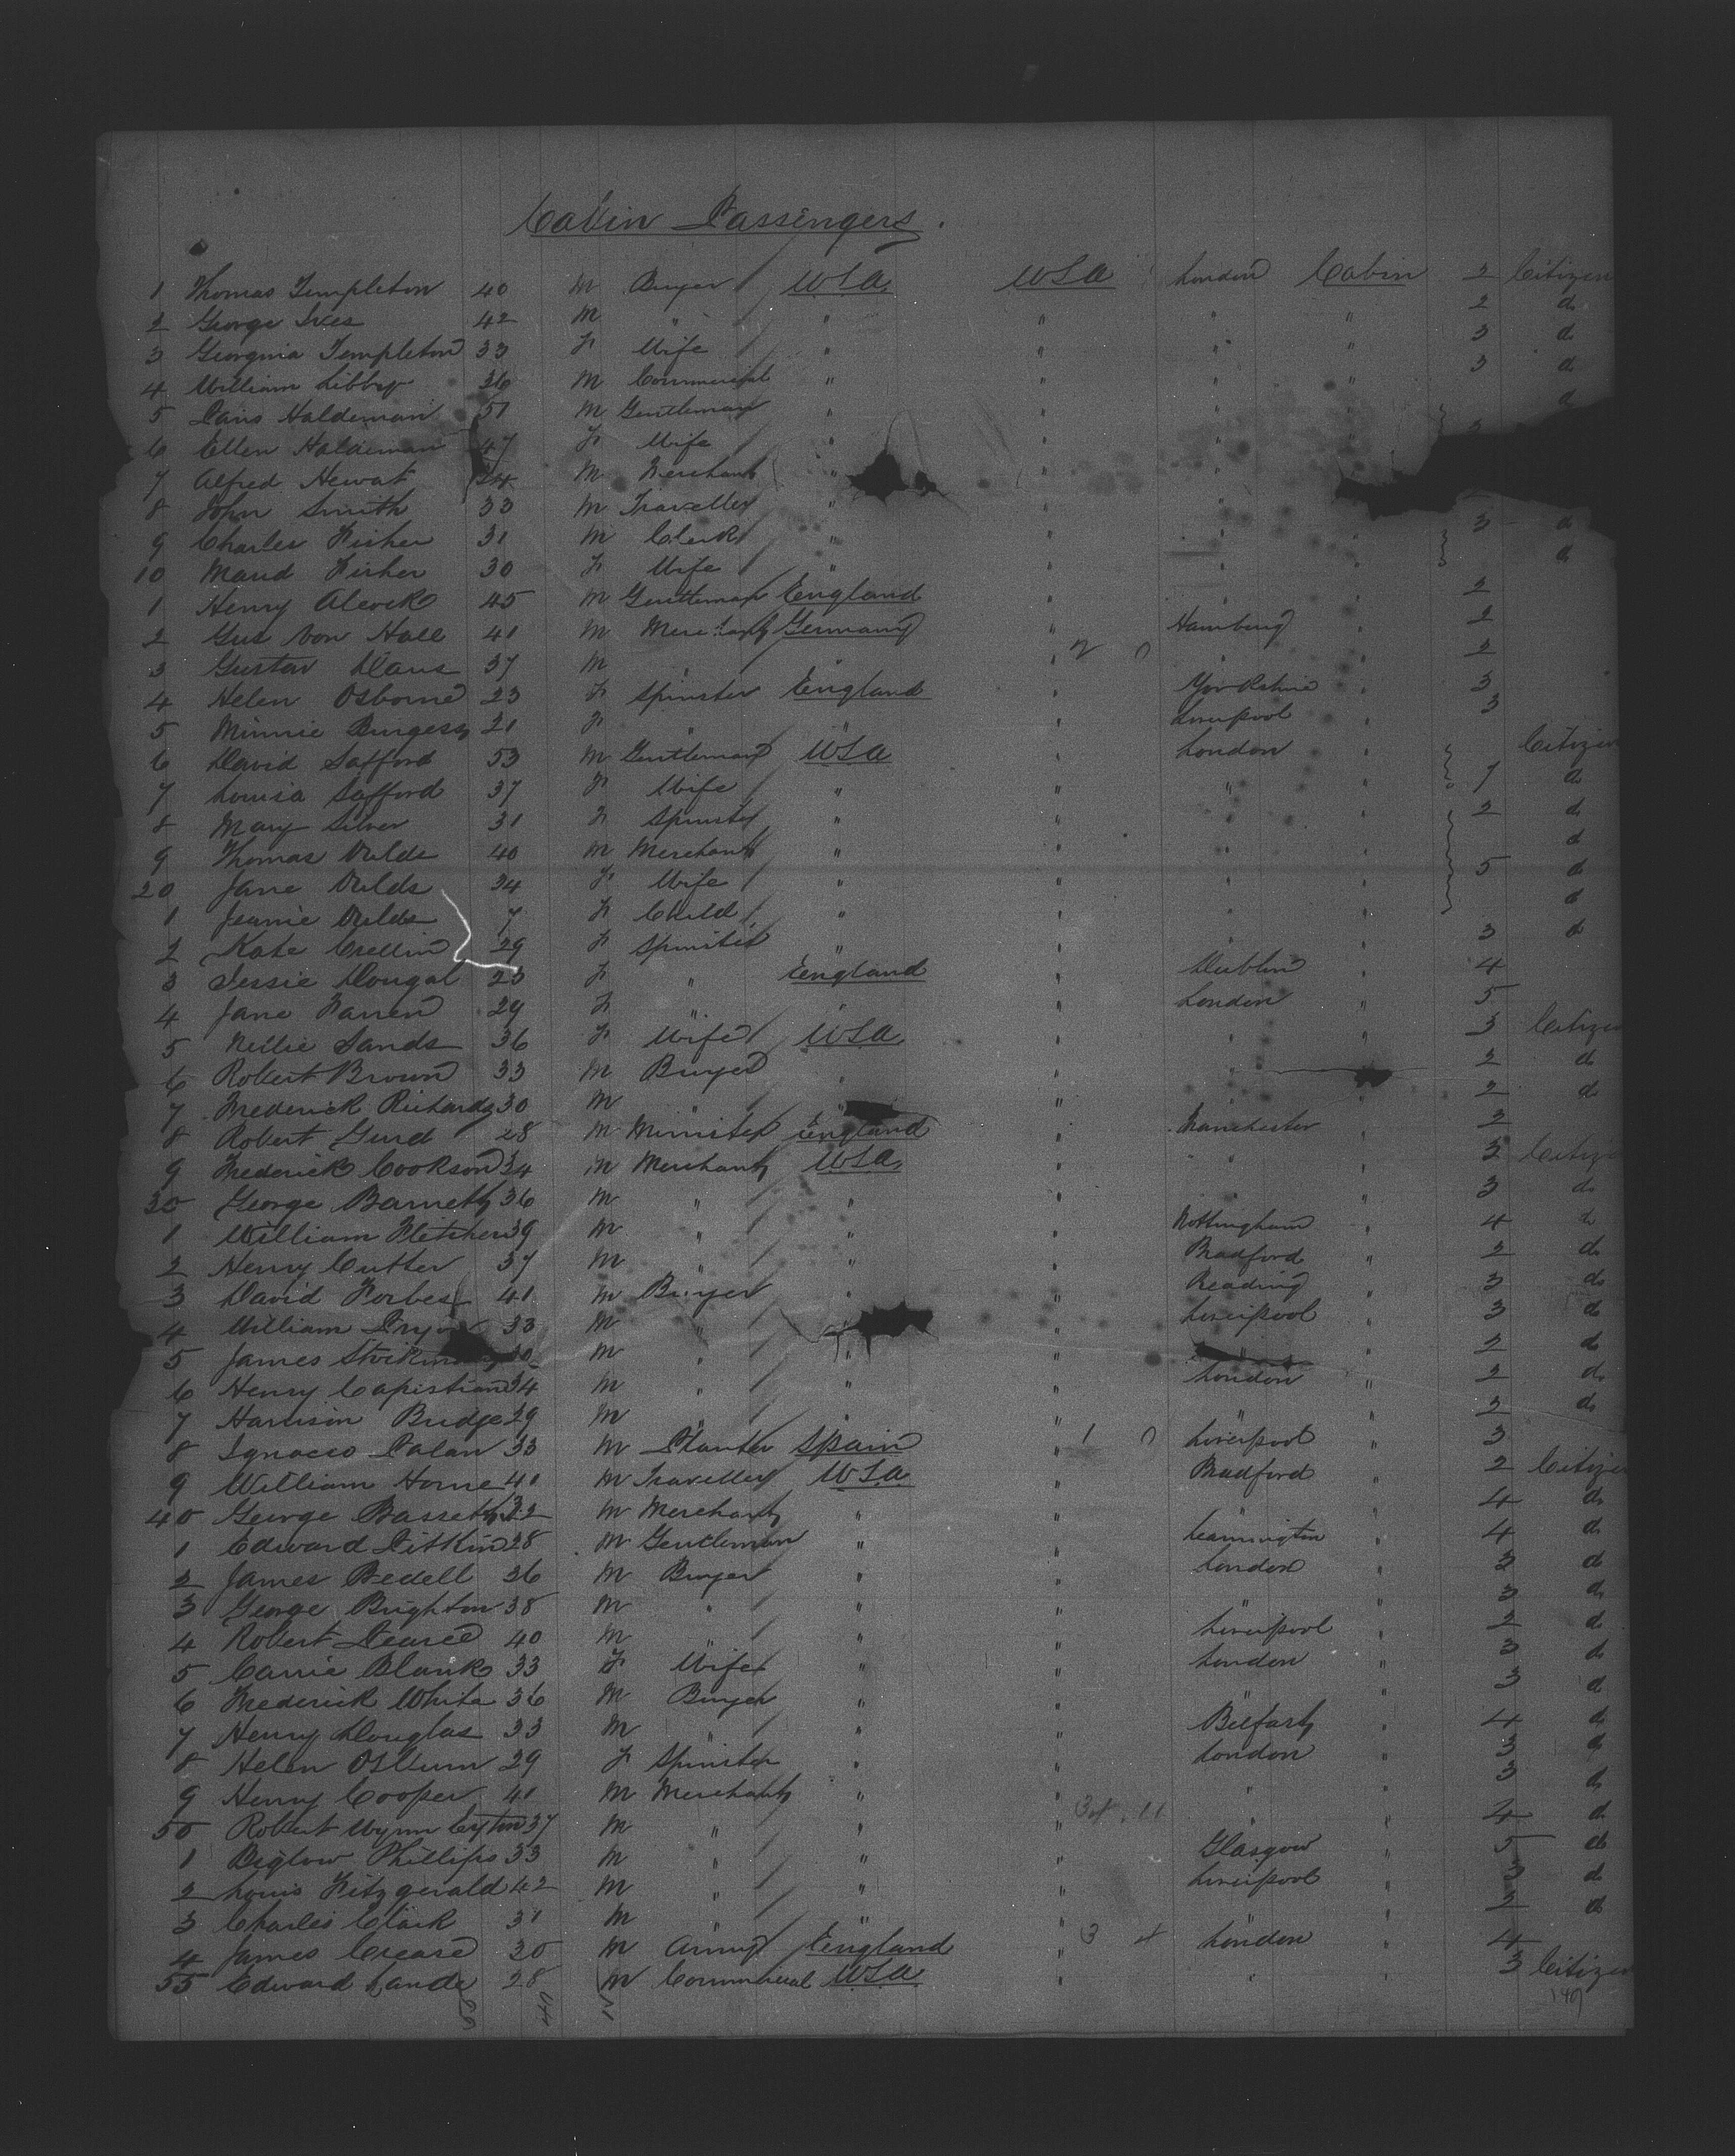 Cabin Passengers.
1 Thomas Templeton 40 M Buyer USA USA London Cabin 2 Citizen
2 George Ives 42 M " " " " " 2 do
3 Georgina Templeton 33 F Wife " " " " 3 do
4 William Libby 36 M Commercial " " " " 3 do
5 Haldeman 51 M Gentleman " " " " do
6 Ellen Haldeman 47 F Wife " " " "
7 Alfred Hewat 24 M Merchant " "
8 John Smith 33 M Traveller " " "
9 Charles Fisher 31 M Clerk " " " " 3 do
10 Maud Fisher 30 F Wife " " " " do
1 Henry Alcock 45 M Gentleman England " " " 2
2 Gus Von Hall 41 M Merchant Germany " Hamburg " 2
3 Gustav 37 M " " " 2 0 " " 2
4 Helen Osborne 23 F Spinster England " Yorkshire " 3
5 Minnie Burgess 21 F " " " Liverpool " 3
6 David Safford 53 M Gentleman USA " London " Citizen
7 Louisa Safford 37 F Wife " " " " 1 do
8 Mary Silver 31 F Spinster " " " " 2 do
9 Thomas 40 M Merchant " " " " do
20 Jane 34 F Wife " " " " 5 do
1 Jeanie 7 F Child " " " " do
2 Kate Crellin 29 F Spinster " " " " 3 do
3 Jessie Dougal 23 F " England " Dublin " 4
4 Jane Farren 29 F " " " London " 5
5 Nellie Sands 36 F Wife USA " " " 3 Citizen
6 Robert Brown 33 M Buyer " " " " 2 do
7 Frederick Richards 30 M " " " 2 do
8 Robert Gurd 28 M Minister England " Manchester " 2
9 Frederick Cookson 34 M Merchant USA " " " 2 Citizen
30 George Barnett 36 M " " " " " 3 do
1 William Fletcher 39 M " " " Nottingham " 4 do
2 Henry Cutter 37 M " " " Bradford " 2 do
3 David Forbes 41 M Buyer " " Reading " 3 do
4 William 33 M " " " Liverpool " 3 do
5 James M " " " " " 2 do
6 Henry Capistian 34 M " " " London " 2 do
7 Harrison Budge 29 M " " " " " 2 do
8 Ignacio Palan 33 M Planter Spain " 1 0 Liverpool " 3
9 William Horne 41 M Traveller USA " Bradford " 2 Citizen
40 George Bassett 32 M Merchant " " " 4 do
1 Edward Pitkin 28 M Gentleman " " Leamington " 4 do
2 James Bedell 36 M Buyer " " London " 3 do
3 George Brighton 38 M " " " " " 3 do
4 Robert Pearce 40 M " " " Liverpool " 2 do
5 Carrie Blank 33 F Wife " " London " 3 do
6 Frederick White 36 M Buyer " " " " 3 do
7 Henry Douglas 33 M " " " Belfast " 4 do
8 Helen Osburn 29 F Spinster " " London " 3 do
9 Henry Cooper 41 M Merchant " " " " 3 do
50 Robert Wynn 37 M " " " 34 11 " " 4 do
1 Biglow Phillips 33 M " " " Glasgow " 5 do
2 Louis Fitzgerald 42 M " " " Liverpool " 3 do
3 Charles Clark 31 M " " " " 2 do
4 James Crease 30 M Army England " 3 4 London " 4
55 Edward Lande 28 M Commercial USA " " 3 Citizen